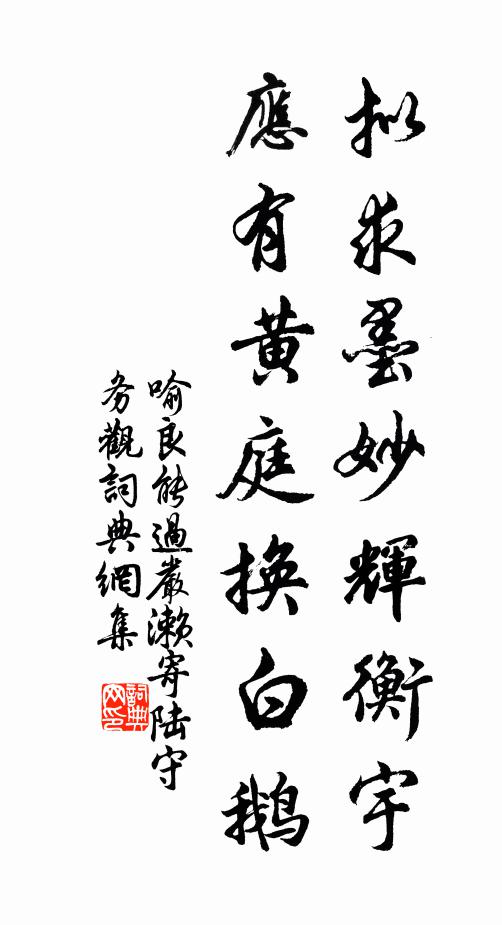 拟求墨妙輝衡宇
應有黄庭換白鹅
喻良能過嚴瀨寄陆守
务觀詞典網集
詞典网印